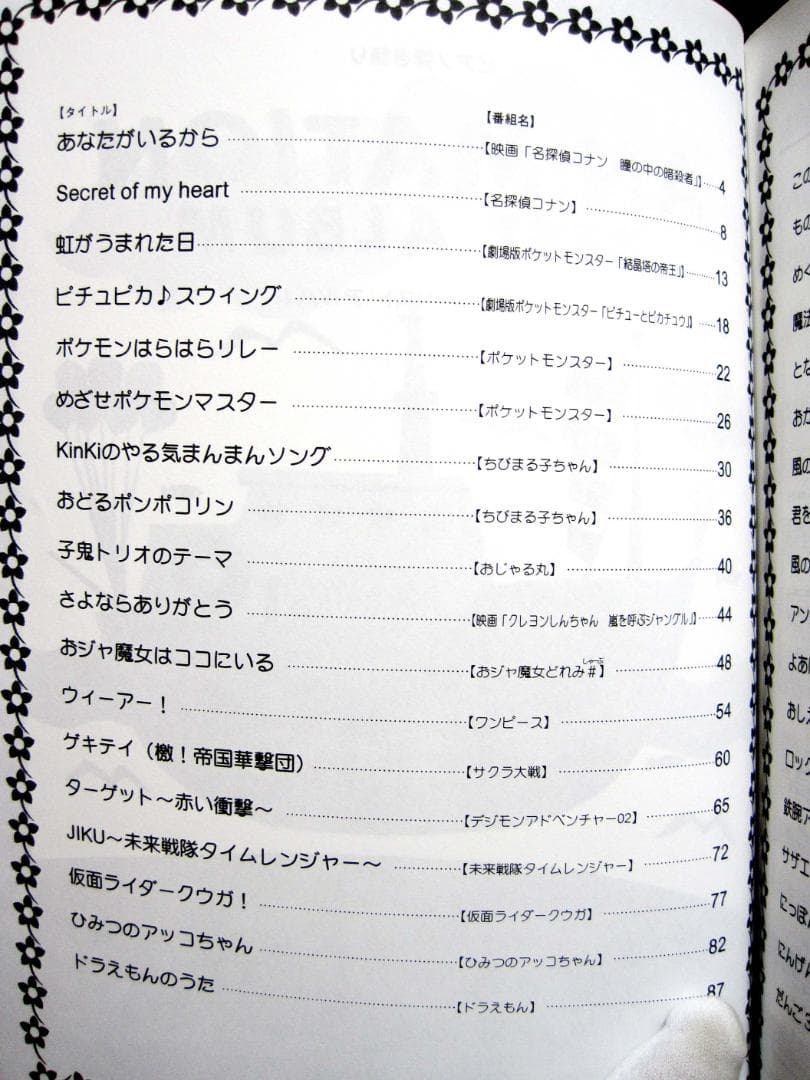 【タイトル】 【番組名】
あなたがいるから 【映画「名探偵コナン 瞳の中の暗殺者」】 4
Secret of my heart 【名探偵コナン】 8
虹がうまれた日 【劇場版ポケットモンスター「結晶塔の帝王」】 13
ピチュピカ♪スウィング 【劇場版ポケットモンスター「ピチューとピカチュウ」】 18
ポケモンはらはらリレー 【ポケットモンスター】 22
めざせポケモンマスター 【ポケットモンスター】 26
KinKiのやる気まんまんソング 【ちびまる子ちゃん】 30
おどるポンポコリン 【ちびまる子ちゃん】 36
子鬼トリオのテーマ 【おじゃる丸】 40
さよならありがとう 【映画「クレヨンしんちゃん 嵐を呼ぶジャングル」】 44
おジャ魔女はココにいる 【おジャ魔女どれみ#】 48
しゃーぷ
ウィーアー! 【ワンピース】 54
ゲキテイ(檄!帝国華撃団) 【サクラ大戦】 60
ターゲット〜赤い衝撃〜 【デジモンアドベンチャー02】 65
JIKU〜未来戦隊タイムレンジャー〜 【未来戦隊タイムレンジャー】 72
仮面ライダークウガ! 【仮面ライダークウガ】 77
ひみつのアッコちゃん 【ひみつのアッコちゃん】 82
ドラえもんのうた 【ドラえもん】 87
この
もの
めぐ
魔法
とな
おか
風の
君を
風の
アン
よあ
おしえ
ロック
鉄腕ア
サザエ
にっぽん
にんげん
だんご3